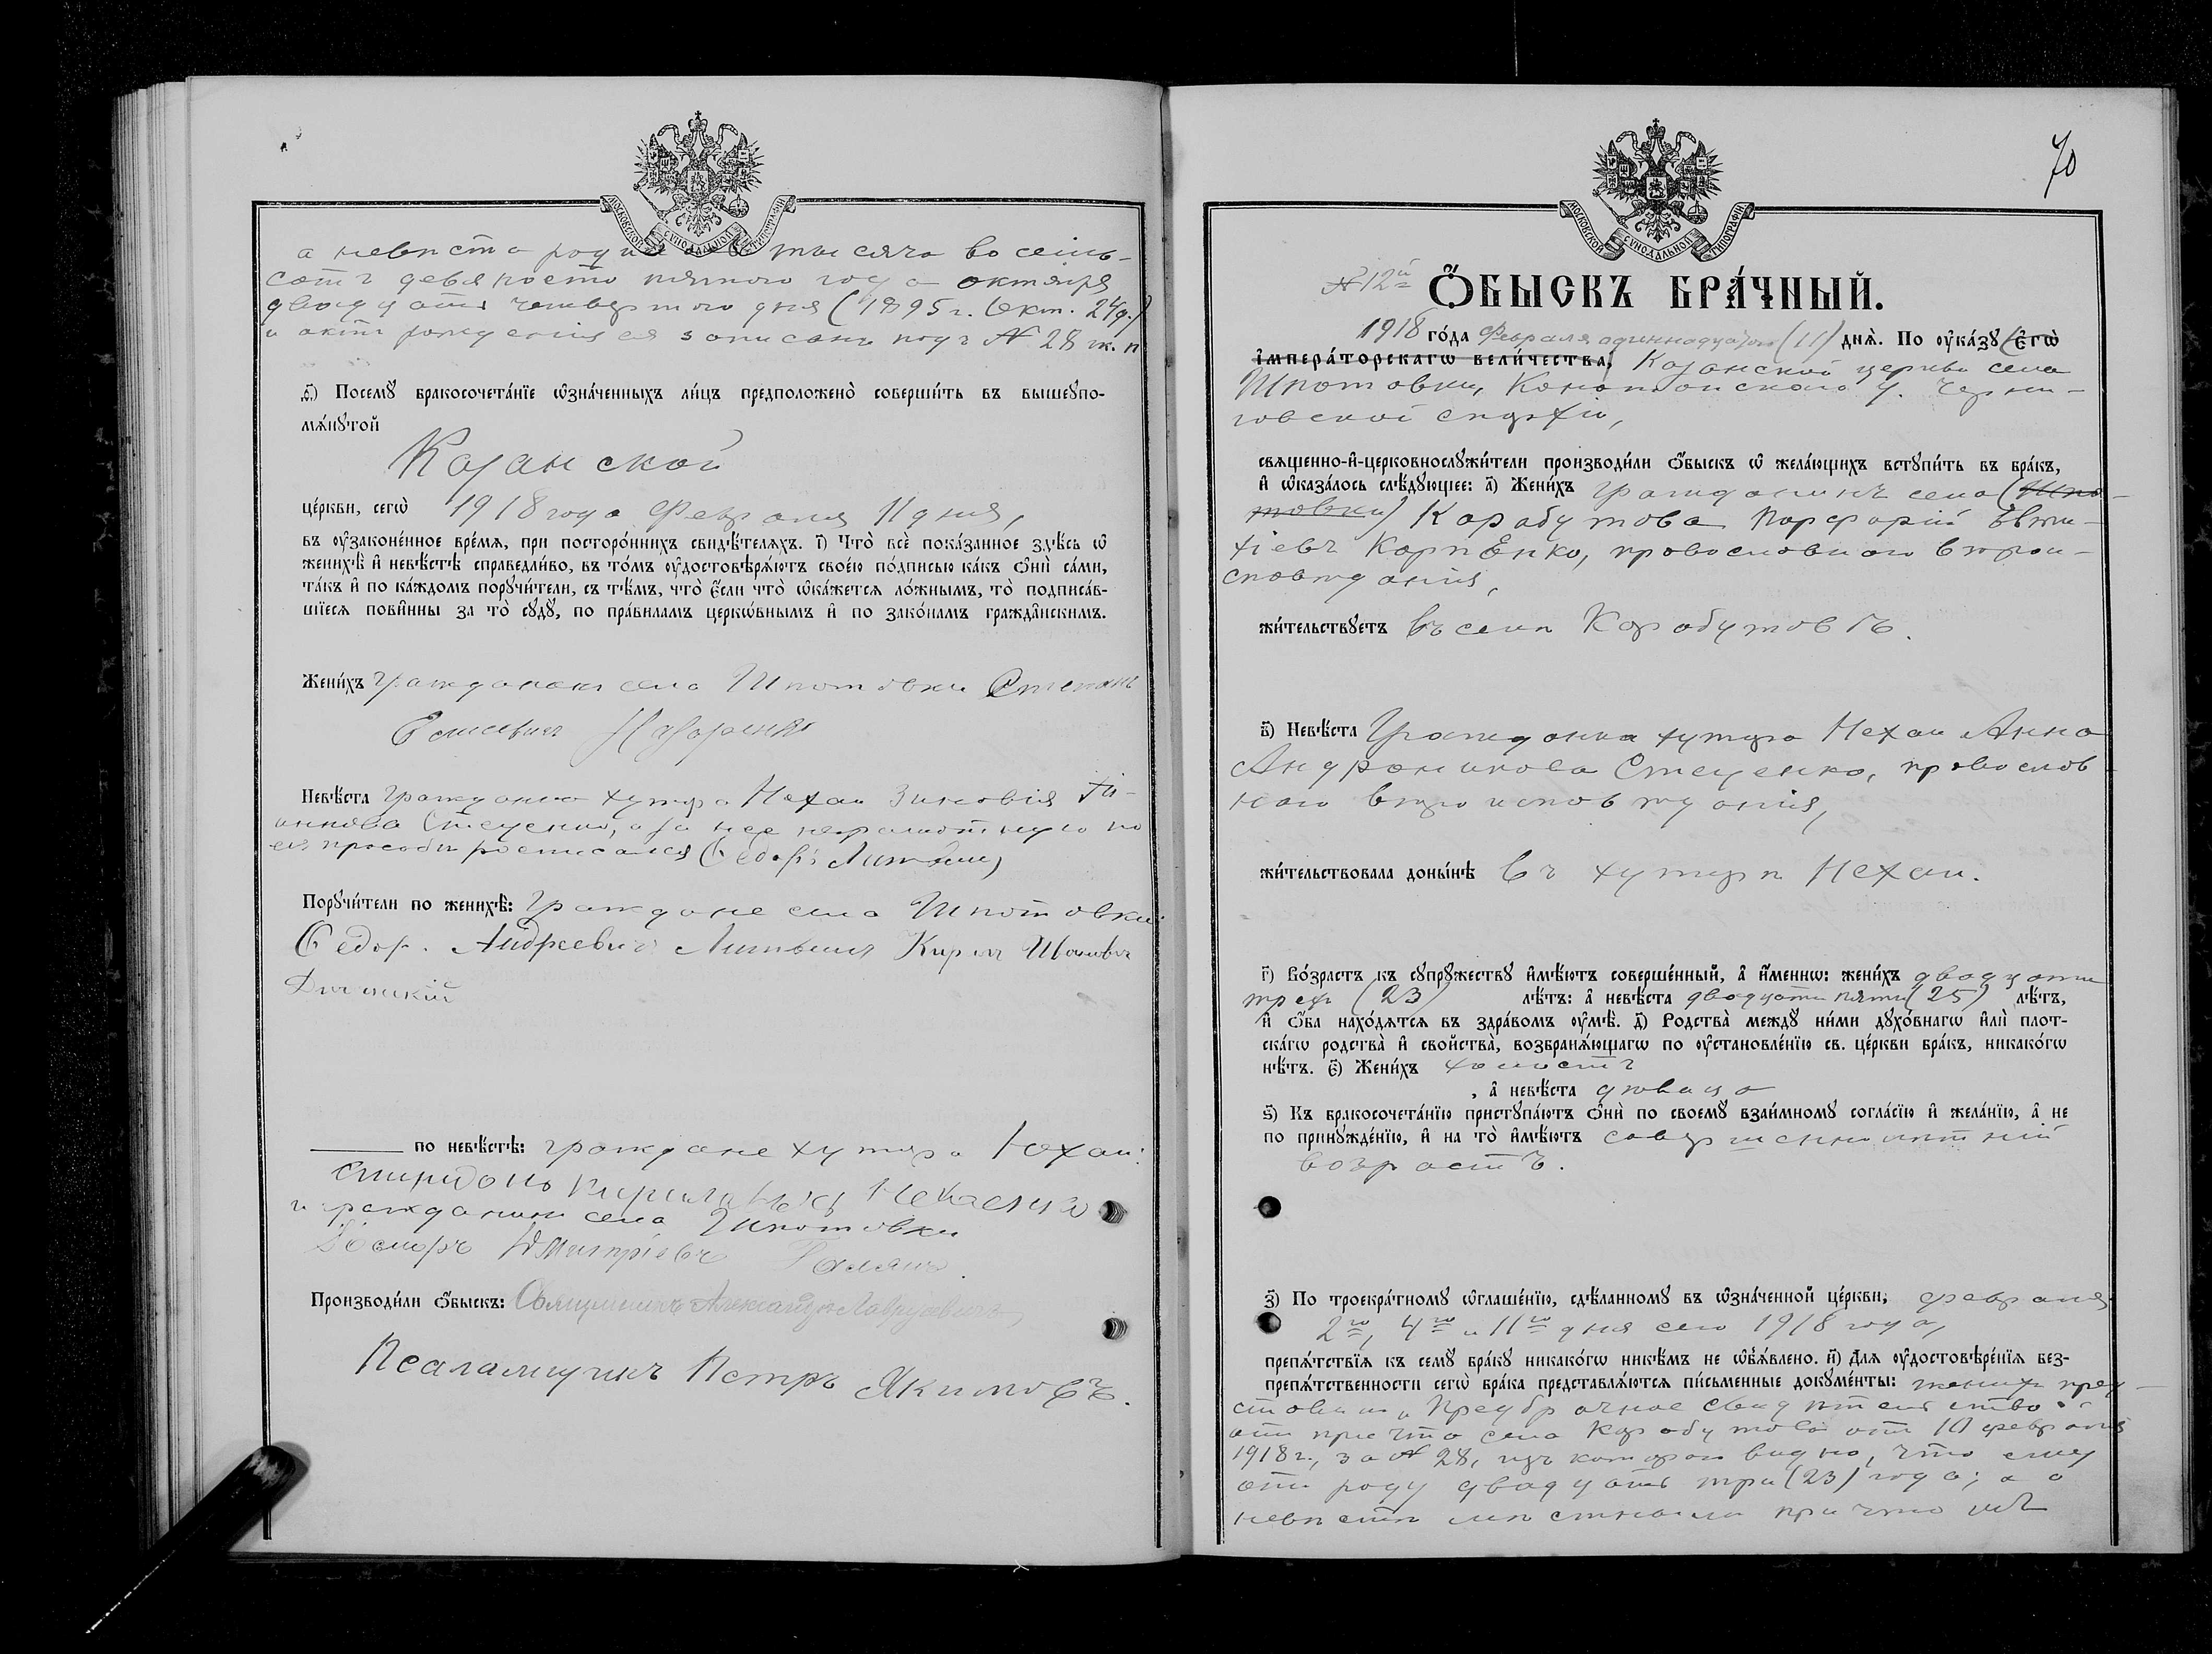 МОСКОВСКОЙ СѴНОДАЛЬНОЙ ТИПОГРАФІИ
а невѣста тысяча восемь-
сотъ девяносто пятого года октября
двадцать четвертого дня (1895 г. Окт. 24 д.)
и актъ рожденія ея записанъ подъ № 28 ж. п
ѳ҃) Посемꙋ бракосочета́нїе ѡ҆зна́ченныхъ ли́цъ предположено̀ соверши́ть въ вышеꙋпо-
мѧ́нꙋтой
Казанской
це́ркви, сегѡ̀ 1918 года Февраля 11 дня,
въ ᲂу҆законе́нное вре́мѧ, при посторо́ннихъ свидѣ́телѧхъ. і҃) Что̀ всѐ пока́занное здѣ́сь ѡ҆
женихѣ̀ и҆ невѣ́стѣ справедли́во, въ то́мъ ᲂу҆достовѣрѧ́ютъ свое́ю по́дписью ка́къ ѻ҆нѝ са́ми,
та́къ и҆ по ка́ждомъ порꙋчи́тели, съ тѣ́мъ, что̀ є҆́сли что̀ ѡ҆ка́жетсѧ ло́жнымъ, то̀ подписа́в-
шїесѧ пови́нны за то̀ сꙋдꙋ̀, по пра́виламъ церкѡ́внымъ и҆ по зако́намъ гражда́нскимъ.
Жени́хъ гражданинъ села Шпотовки Степанъ
Назаренко
Невѣ́ста гражданка хутора Нехаи Зиновія Іо-
аннова Стеценко, а за нее неграмотную по
ея просьби росписался Ѳедоръ Литвинъ
Порꙋчи́тели по женихѣ̀: Граждане села Шпотовки:
Ѳедоръ Андреевичъ Литвинъ Кирилъ Ивановичъ
по невѣ́стѣ: граждане хутора Нехаи:
Спиридонъ Кириловичъ
и гражданинъ села Шпотовки
Дмитріевъ
Производи́ли ѻ҆́быскъ: Священникъ Александръ
Псаламщикъ Петръ Якимовъ.
70
МОСКОВСКОЙ СѴНОДАЛЬНОЙ ТИПОГРАФІИ
№ 12й
Ѻ҆́БЫСКЪ БРА́ЧНЫЙ.
1918 го́да Февраля одиннадцатого (11) днѧ̀. По ᲂу҆ка́зꙋ (є҆гѡ̀
і҆мпера́торскагѡ вели́чества, Казанской церкви села
Шпотовки, Конотопского у. Черни-
говской епархіи,
свѧщенно-и҆-церковнослꙋжи́тели производи́ли ѻ҆́быскъ ѡ҆ жела́ющихъ встꙋпи́ть въ бра́къ,
и҆ ѡ҆каза́лось слѣ́дꙋющее: а҃) Жени́хъ гражданинъ села (Шпо-
товки) Карабутова Порфирій Евти-
хіевъ Карпенко, православного вѣрои-
сповѣданія,
жи́тельствꙋетъ въ селѣ Карабутовѣ.
в҃) Невѣ́ста Гражданка хутора Нехаи Анна
Андроникова Стеценко, православ-
ного вѣроисповѣданія,
жи́тельствовала доны́нѣ въ хуторѣ Нехаи.
г҃) Во́зрастъ къ сꙋпрꙋ́жествꙋ и҆мѣ́ютъ соверше́нный, а҆ и҆́менно: жени́хъ двадцати
трехъ (23) лѣ́тъ: а҆ невѣ́ста двадцати пяти (25) лѣ́тъ,
и҆ ѻ҆́ба нахо́дѧтсѧ въ здра́вомъ ᲂу҆мѣ̀. д҃) Родства̀ междꙋ̀ ни́ми дꙋхо́внагѡ и҆лѝ плот-
ска́гѡ родства̀ и҆ свойства̀, возбранѧ́ющагѡ по ᲂу҆становле́нїю св. це́ркви бра́къ, никако́гѡ
нѣ́тъ. є҃) Жени́хъ холостъ
, а҆ невѣ́ста дѣвица
ѕ҃) Къ бракосочета́нїю пристꙋпа́ютъ ѻ҆нѝ по своемꙋ̀ взаи́мномꙋ согла́сїю и҆ жела́нїю, а҆ не
по принꙋжде́нїю, и҆ на то̀ и҆мѣ́ютъ совершеннолѣтній
возрастъ.
з҃) По троекра́тномꙋ ѡ҆глаше́нїю, сдѣ́ланномꙋ въ ѡ҆зна́ченной це́ркви, февраля
2го, 4го и 11го дня сего 1918 года,
препѧ́тствїѧ къ семꙋ̀ бра́кꙋ никако́гѡ никѣ́мъ не ѡ҆б̾ѧ́влено. и҃) Длѧ ᲂу҆достовѣре́нїѧ без-
препѧ́тственности сегѡ̀ бра́ка представлѧ́ютсѧ пи́сьменные докꙋме́нты: женихъ пред-
ставилъ „Предбрачное свидѣтельство"
отъ причта села Карабутова отъ 10 февраля
1918 г., за № 28, изъ которого видно, что ему
отъ роду двадцать три (23) года; а о
невѣстѣ мѣстному причту